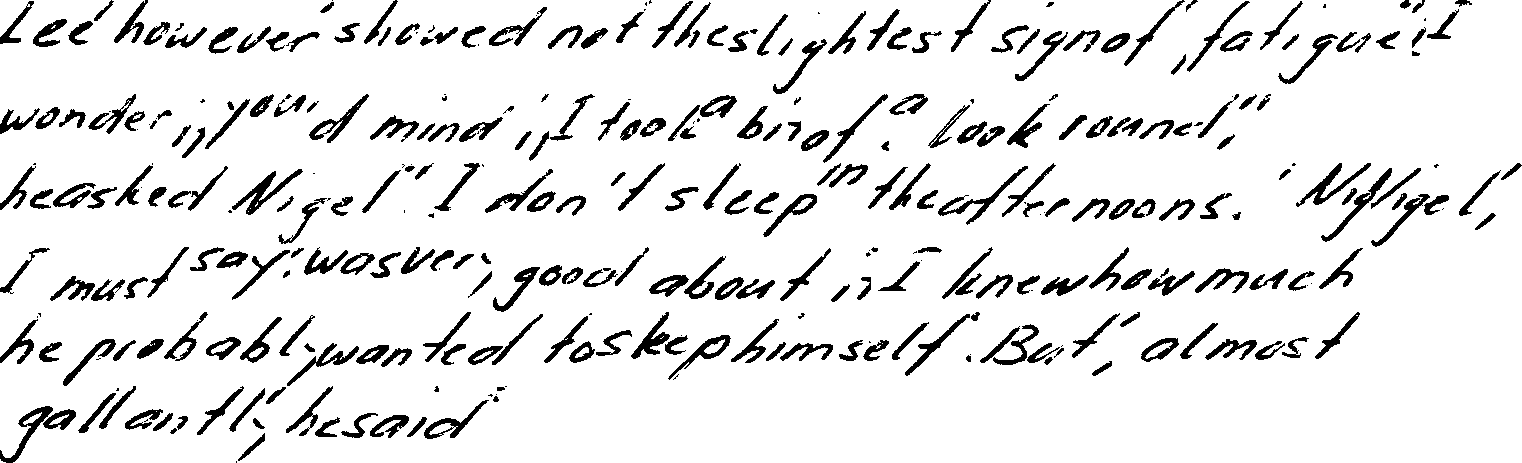 Lee however showed not the slightest sign of fatigue. "I
wonder if you'd mind if I took a bit of a look round,"
he asked Nigel. "I don't sleep in the afternoons." Nigel,
I must say, was very good about it. I knew how much
he probably wanted to sleep himself. But, almost
gallantly, he said